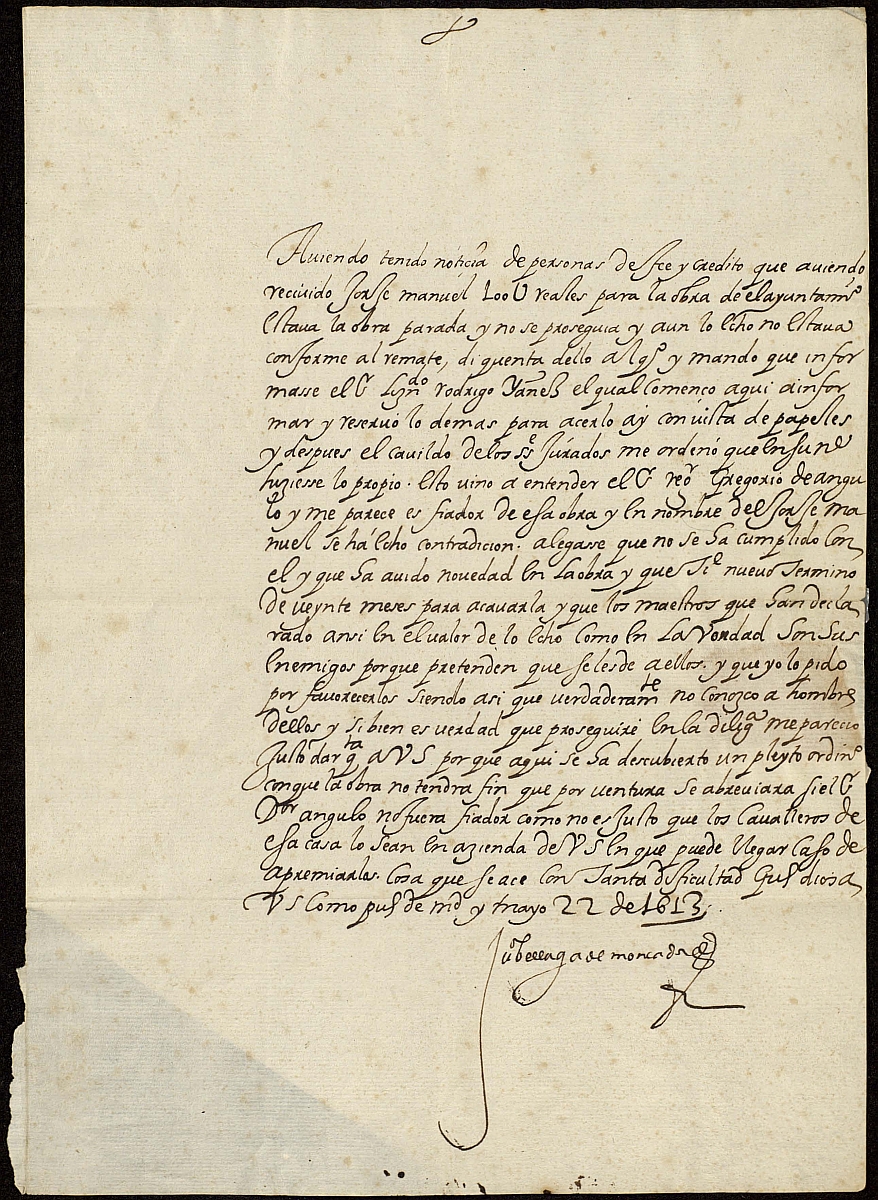 Auiendo tenido noticia de personas de fee y credito que auiendo
recivido Jorge manuel 100U reales para la obra de el ayuntamto
Estava la obra parada y no se proseguia y aun lo Echo no Estava
conforme al remate, di quenta dello al qo y mando que infor
masse el Sr Lizdo rodrigo Yañez el qual Començo aqui a infor
mar y reservó lo demas para acerlo ay con vista de papeles
y despues el cavildo de los sres Jurados me ordenó que En su ne
hiziesse lo propio. Esto vino a entender el Sr regor Gregorio de angu
lo y me parece es fiador de esa obra y En nombre del Jorge ma
nuel se há Echo contradicion. alegasse que no se ha cumplido Con
el y que ha auido novedad En La obra y que tie nuevo Termino
De veynte meses para acavarla y que los maestros que han decla
rado ansi En el valor de lo Echo como En La Verdad Son Sus
Enemigos porque pretenden que se les de a ellos. y que yo lo pido
por favorecerlos siendo asi que verdaderamte no conozco a hombre
dellos y si bien es verdad que proseguiré En la diliga me parecio
Justo dar qta a VS porque aqui se ha descubierto un pleyto ordino
conque la obra no tendra fin que por ventura se abreviara si el Sr
Dor angulo no fuera fiador como no es Justo que los Cavalleros de
esa casa lo sean En azienda de VS En que puede llegar Caso de
apremiarlos. Cosa que se ace con Tanta dificultad Gue dios a
VS Como pue de md y mayo 22 de 1613.
Ju de moncada